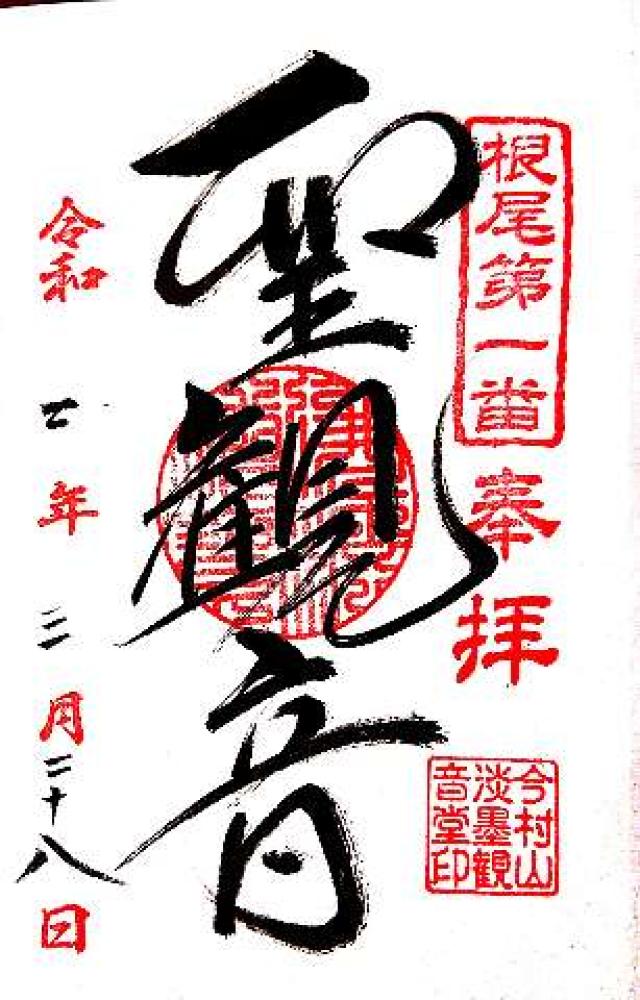 根尾第一番
奉拝
今村山
淡墨観
音堂印
聖観音
令和七年三月二十八日